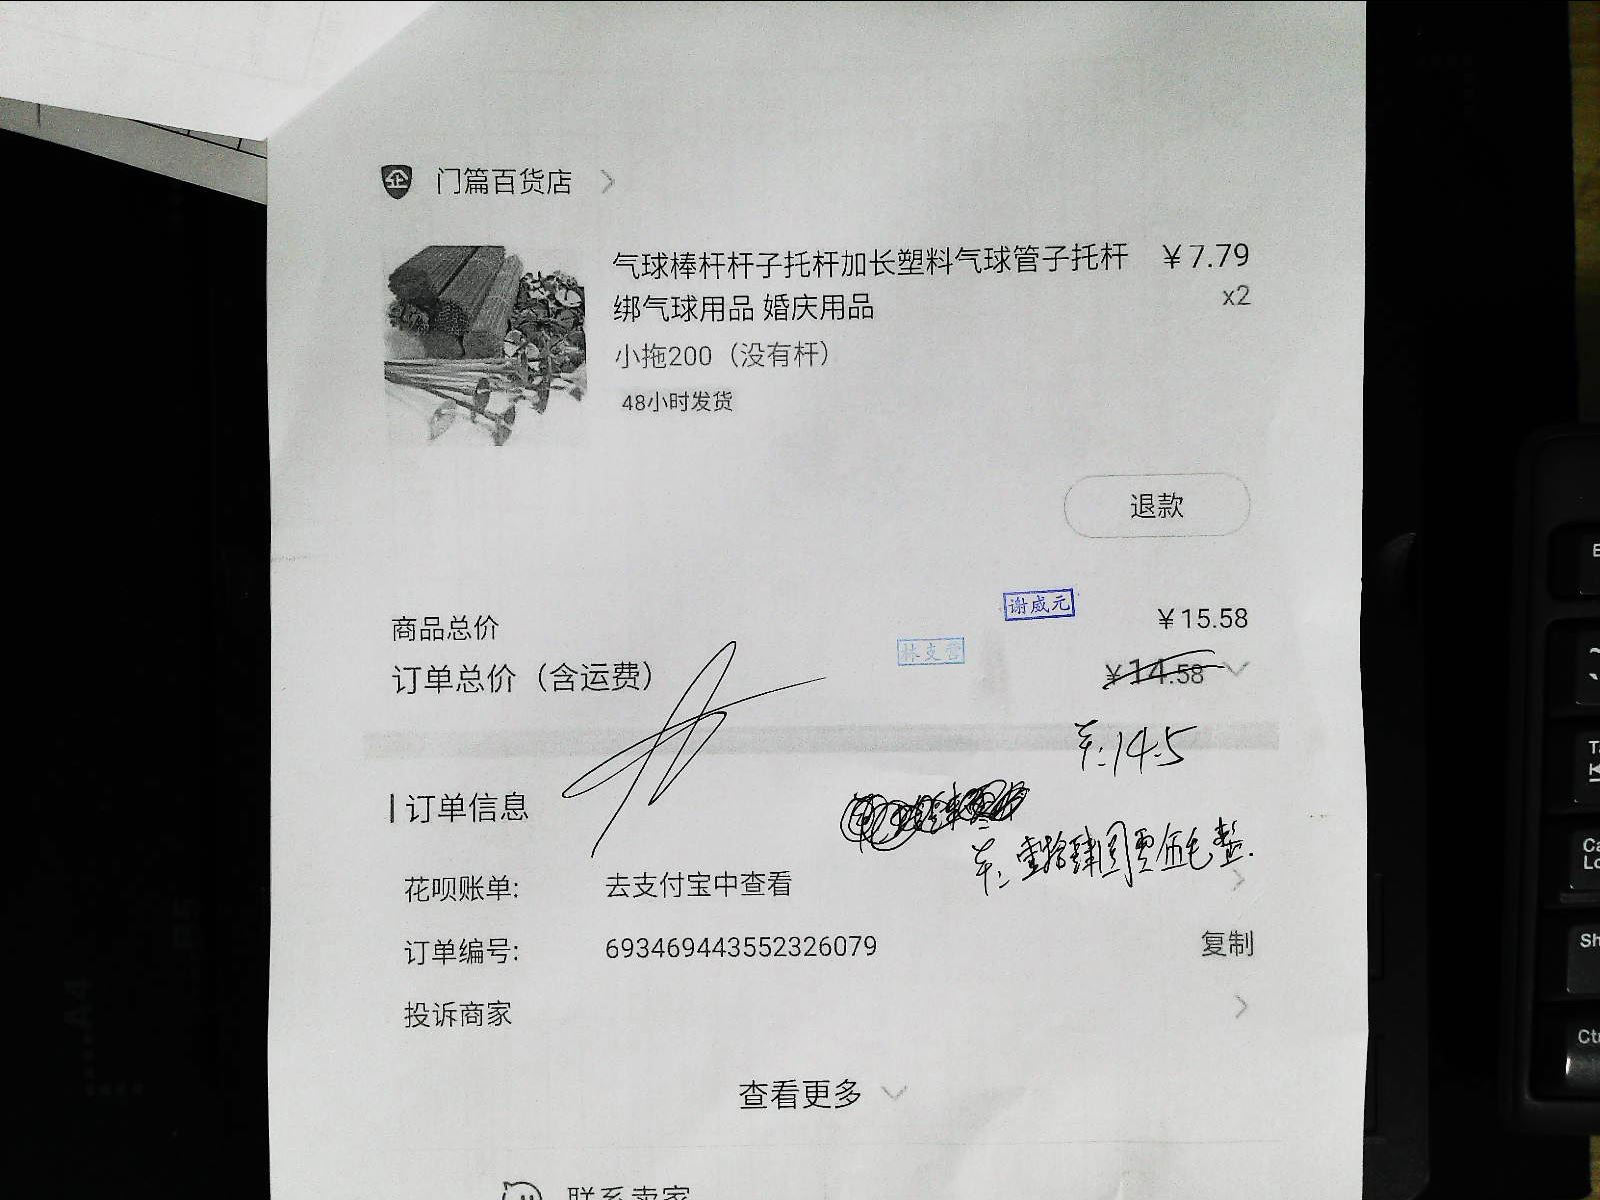 企 门篇百货店
气球棒杆杆子托杆加长塑料气球管子托杆 ¥7.79
绑气球用品 婚庆用品 x2
小拖200（没有杆）
48小时发货
退款
谢威元
商品总价 ¥15.58
林支营
订单总价（含运费） ¥14.58
羊:14.5
订单信息
羊:壹拾肆圆零伍毛整.
花呗账单: 去支付宝中查看
订单编号: 693469443552326079 复制
投诉商家
查看更多
联系卖家
A4
Sh
Ctr